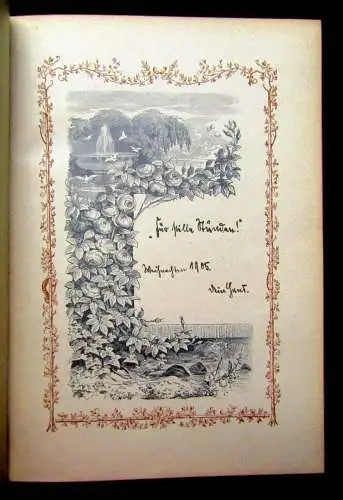 „Für stille Stunden!“
Weihnachten 1905.
Dein